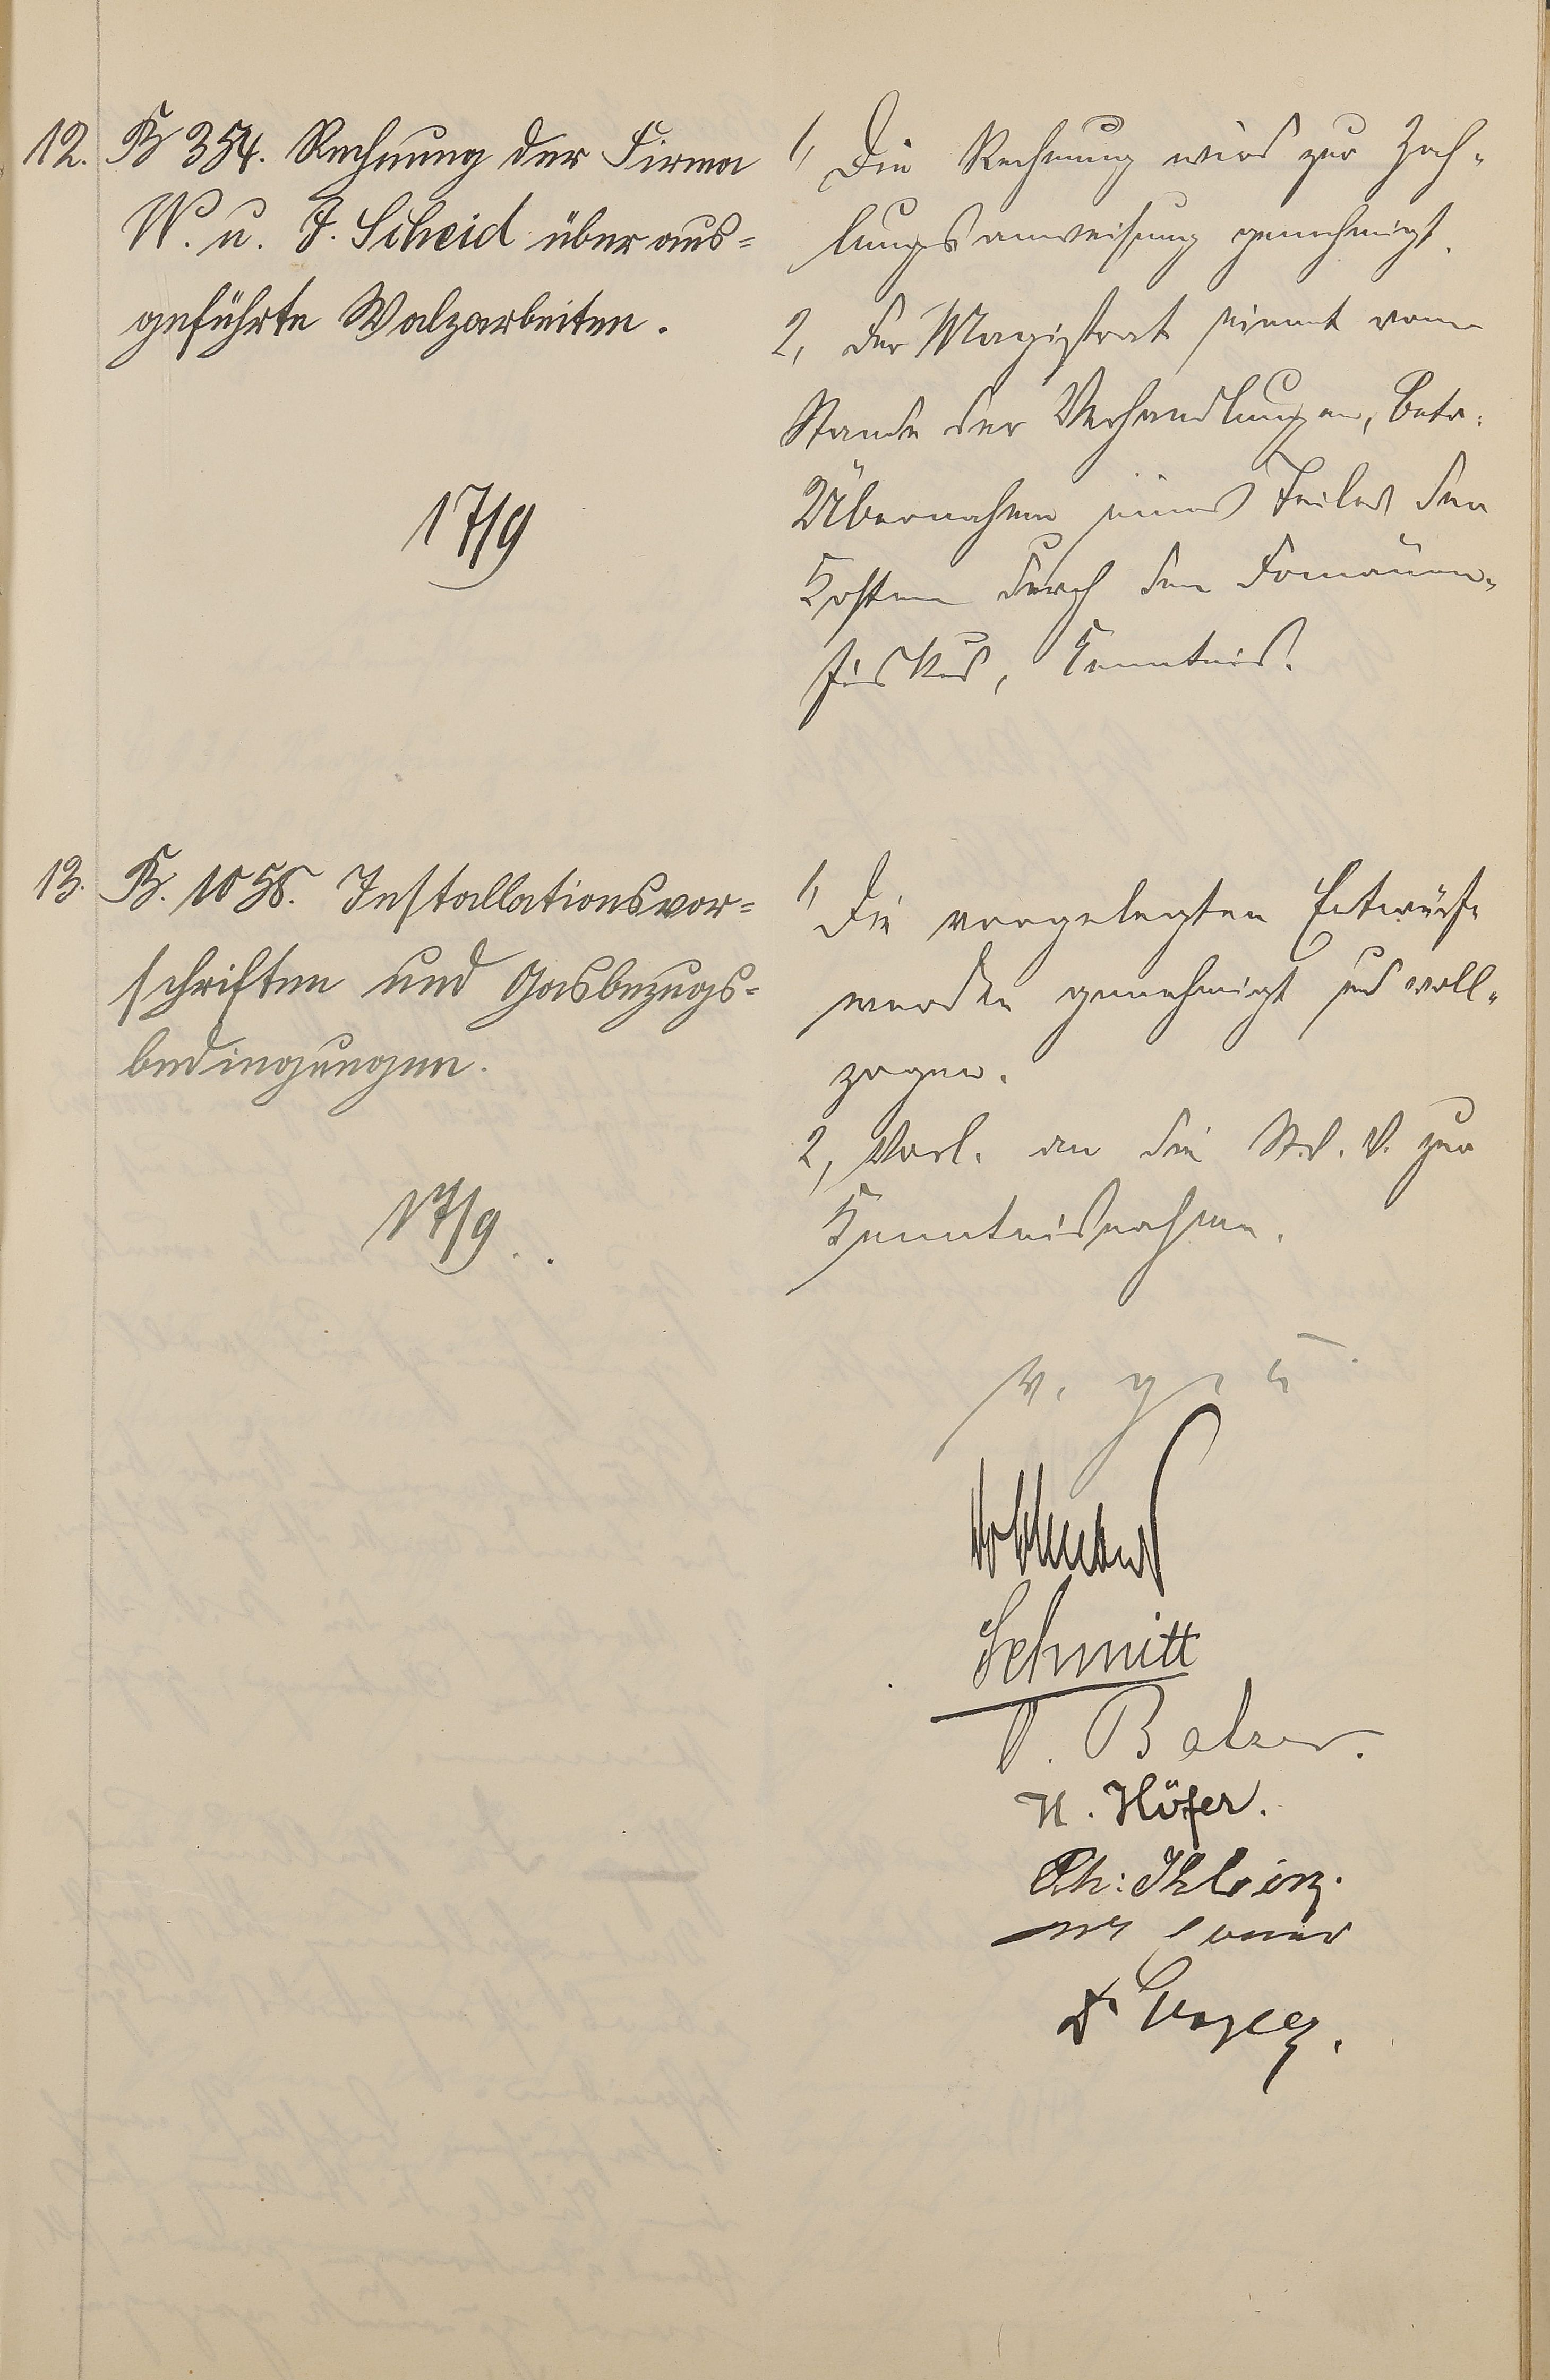 12. B 354. Rechnung der Firma
W. u. J. Scheid über aus-
geführte Walzarbeiten.
17/9
1, Die Rechnung wird zur Zah-
lungsanweisung genehmigt.
2, Der Magistrat nimmt vom
Stande der Verhandlungen, betr.
Übernahme eines Teiles der
Kosten durch den Domänen-
fiskus, Kenntnis.
13. B. 1058. Installationsvor-
schriften und Gasbezugs-
bedingungen.
17/9.
1, Die vorgelegten Entwürfe
werden genehmigt und voll-
zogen.
2, Vorl. an die St. V. V. zur
Kenntnisnahme.
v. g. u.
Schmitt
Balzer.
H. Höfer.
Ph:
Dr